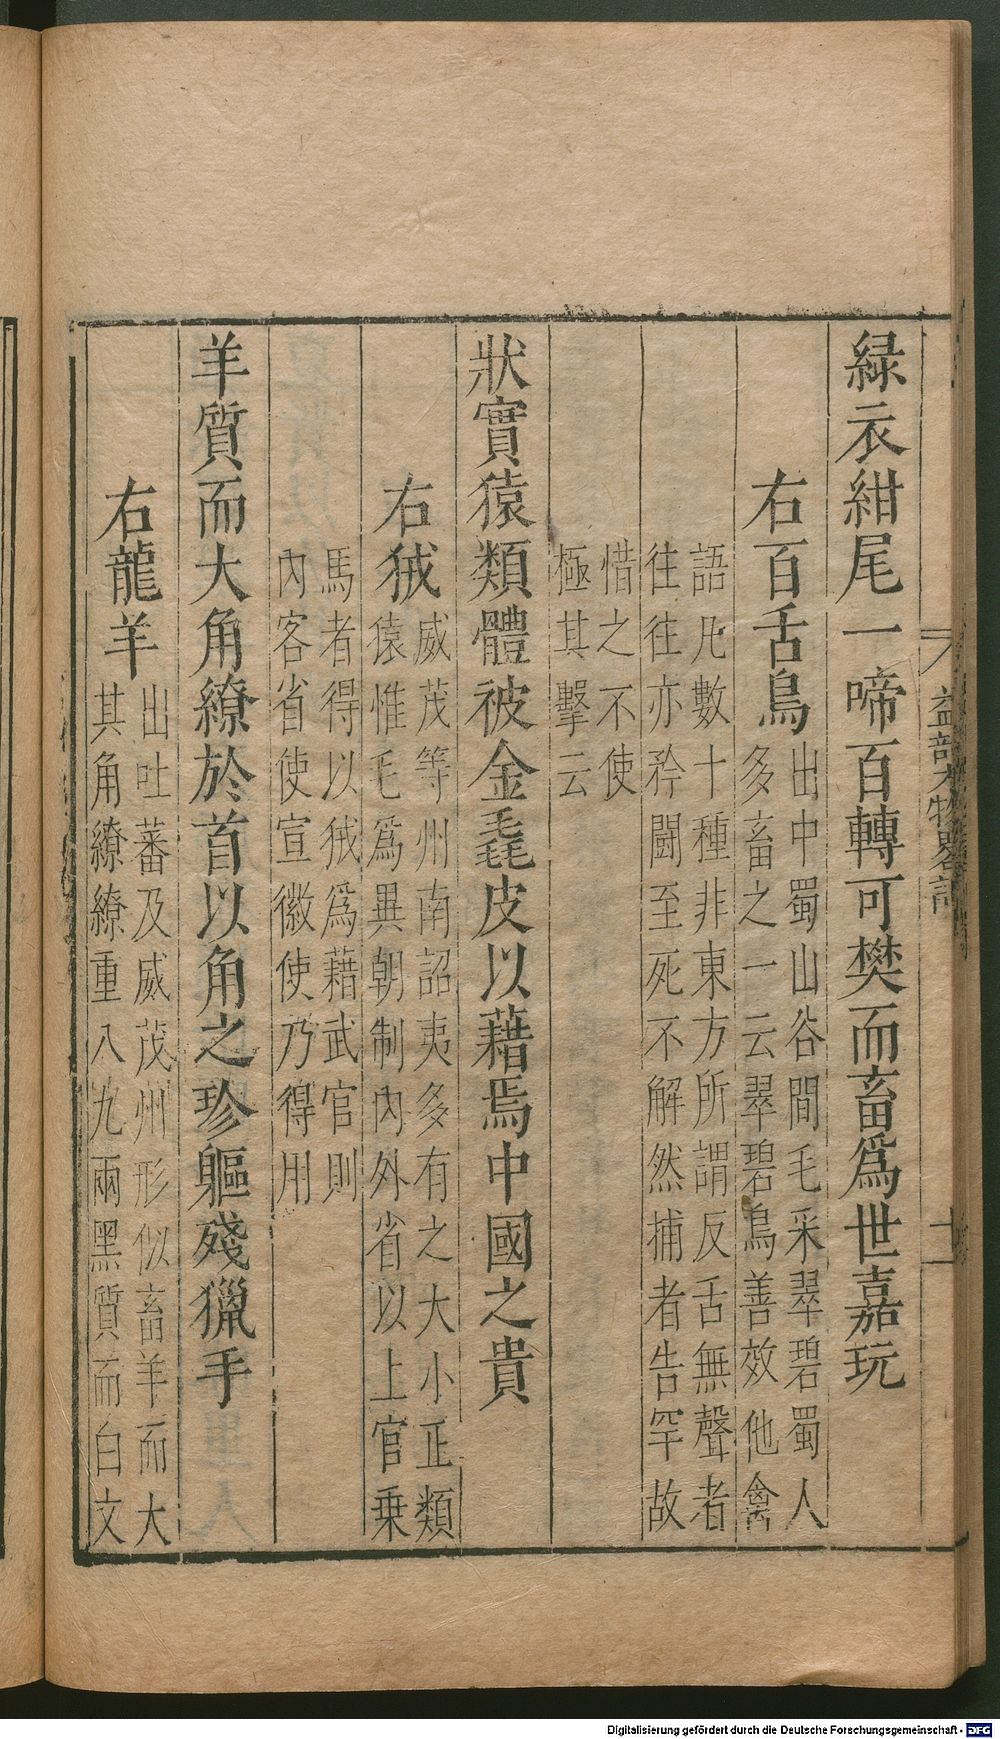 益部方物略記
十一
緑衣紺尾一啼百轉可樊而畜爲世嘉玩
右百舌鳥
出中蜀山谷間毛采翠碧蜀人
多畜之一云翠碧鳥善效他禽
語凡數十種非東方所謂反舌無聲者
往往亦矜鬪至死不解然捕者告罕故
惜之不使
極其擊云
狀實猿類體被金毳皮以藉焉中國之貴
右狨
威茂等州南詔夷多有之大小正類
猿惟毛爲異朝制內外省以上官乗
馬者得以狨爲藉武官則
內客省使宣徽使乃得用
羊質而大角繚於首以角之珍軀殘獵手
右龍羊
出吐蕃及威茂州形似畜羊而大
其角繚繚重八九兩黑質而白文
Digitalisierung gefördert durch die Deutsche Forschungsgemeinschaft - DFG